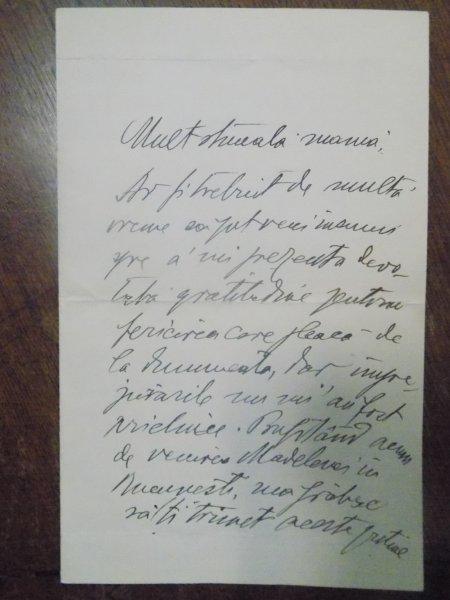 Mult stimată mamă,
Ar fi trebuit de multă
vreme să pot veni
spre a-mi prezenta devo-
tată gratitudine pentru
fericirea care pleacă de
la dumneata, dar impre-
jurările nu mi-au fost
prielnice. Profitând acum
de venirea Madelenei în
București, mă grăbesc
să-ți trimet aceste puține